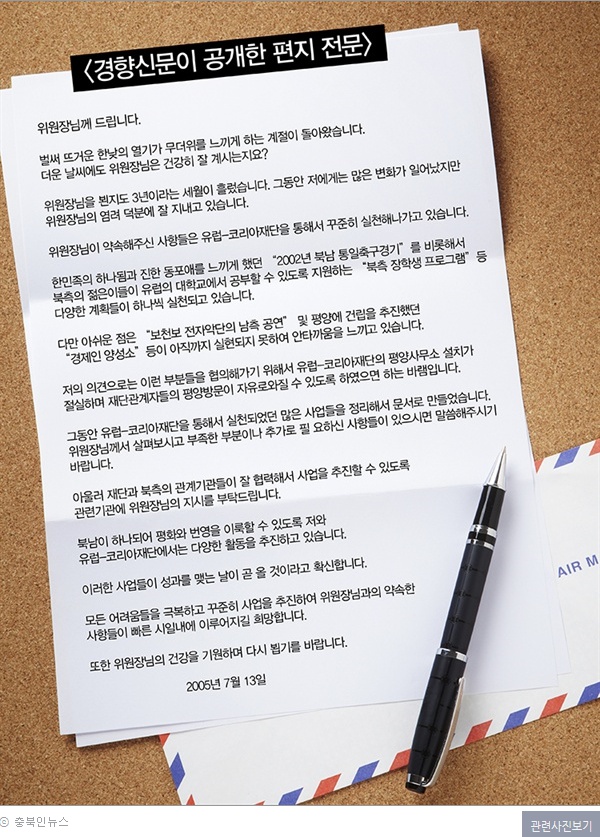 <경향신문이 공개한 편지 전문>
위원장님께 드립니다.
벌써 뜨거운 한낮의 열기가 무더위를 느끼게 하는 계절이 돌아왔습니다.
더운 날씨에도 위원장님은 건강히 잘 계시는지요?
위원장님을 뵌지도 3년이라는 세월이 흘렀습니다. 그동안 저에게는 많은 변화가 일어났지만
위원장님의 염려 덕분에 잘 지내고 있습니다.
위원장님이 약속해주신 사항들은 유럽-코리아재단을 통해서 꾸준히 실천해나가고 있습니다.
한민족의 하나됨과 진한 동포애를 느끼게 했던 “2002년 북남 통일축구경기”를 비롯해서
북측의 젊은이들이 유럽의 대학교에서 공부할 수 있도록 지원하는 “북측 장학생 프로그램”등
다양한 계획들이 하나씩 실천되고 있습니다.
다만 아쉬운 점은 “보천보 전자악단의 남측 공연” 및 평양에 건립을 추진했던
“경제인 양성소”등이 아직까지 실현되지 못하여 안타까움을 느끼고 있습니다.
저의 의견으로는 이런 부분들을 협의해가기 위해서 유럽-코리아재단의 평양사무소 설치가
절실하며 재단관계자들의 평양방문이 자유로와질 수 있도록 하였으면 하는 바램입니다.
그동안 유럽-코리아재단을 통해서 실천되었던 많은 사업들을 정리해서 문서로 만들었습니다.
위원장님께서 살펴보시고 부족한 부분이나 추가로 필 요하신 사항들이 있으시면 말씀해주시기
바랍니다.
아울러 재단과 북측의 관계기관들이 잘 협력해서 사업을 추진할 수 있도록
관련기관에 위원장님의 지시를 부탁드립니다.
북남이 하나되어 평화와 번영을 이룩할 수 있도록 저와
유럽-코리아재단에서는 다양한 활동을 추진하고 있습니다.
이러한 사업들이 성과를 맺는 날이 곧 올 것이라고 확신합니다.
모든 어려움들을 극복하고 꾸준히 사업을 추진하여 위원장님과의 약속한
사항들이 빠른 시일내에 이루어지길 희망합니다.
또한 위원장님의 건강을 기원하며 다시 뵙기를 바랍니다.
2005년 7월 13일
AIR M
ⓒ 충북인뉴스
관련사진보기